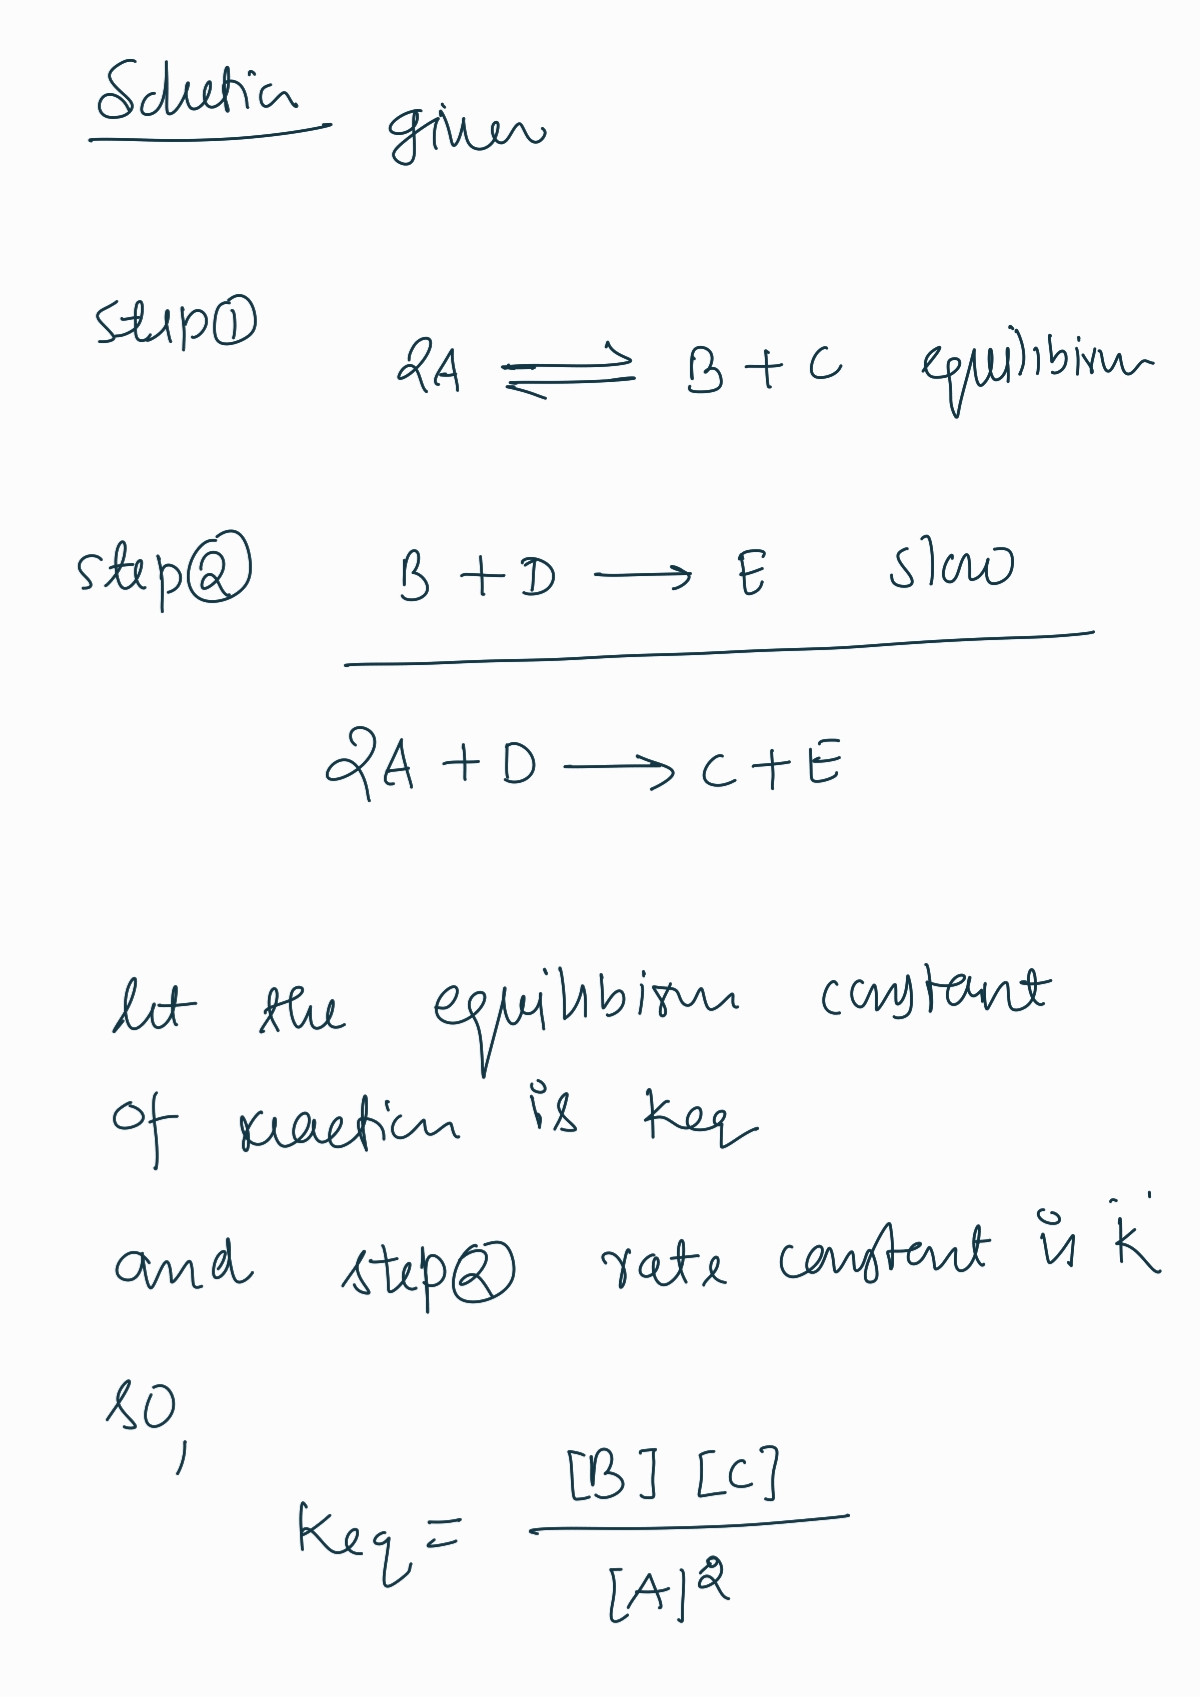 Solution given
step ①
2A ⇌ B + C equilibrium
step ② B + D ⟶ E slow
2A + D ⟶ C + E
let the equilibrium constant
of reaction is Keq
and step ② rate constant is K
so,
Keq = [B] [C]
[A]2